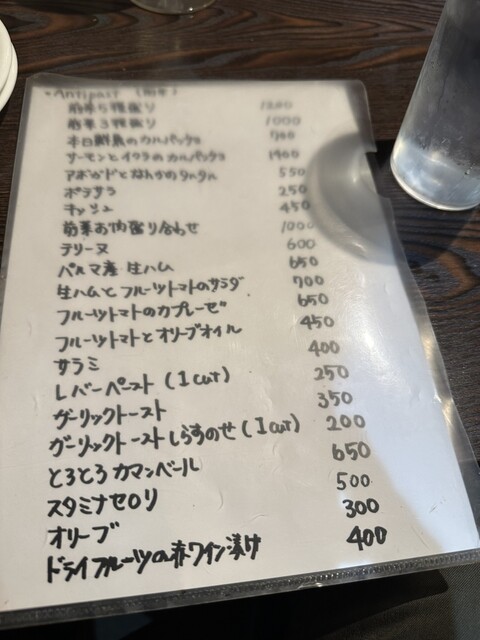 ・Antipast (前菜)
前菜5種盛り 1200
前菜3種盛り 1000
本日鮮魚のカルパッチョ 700
サーモンとイクラのカルパッチョ 1400
アボカドとなんかのタルタル 550
ポテサラ 250
キッシュ 450
前菜お肉盛り合わせ 1000
テリーヌ 600
パルマ産 生ハム 650
生ハムとフルーツトマトのサラダ 700
フルーツトマトのカプレーゼ 650
フルーツトマトとオリーブオイル 450
サラミ 400
レバーペースト (1cut) 250
ガーリックトースト 350
ガーリックトーストしらすのせ (1cut) 200
とろとろカマンベール 650
スタミナセロリ 500
オリーブ 300
ドライフルーツの赤ワイン漬け 400